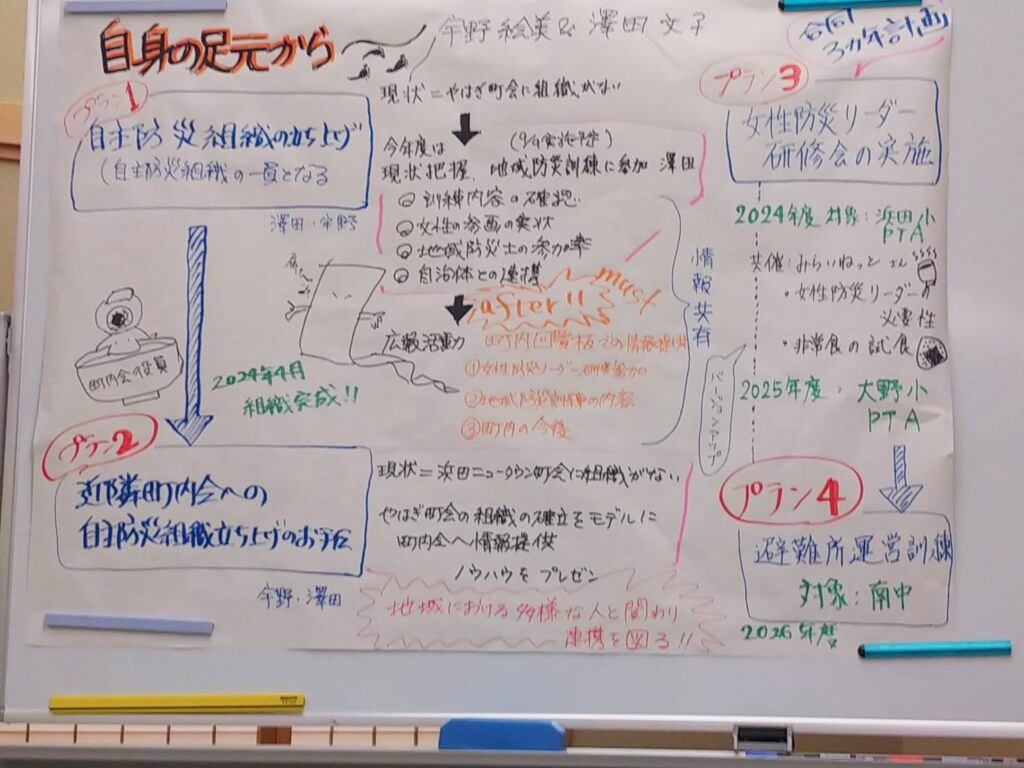 自身の足元から
宇野絵美&澤田文子
合同
3ヵ年計画
プラン1
自主防災組織の立ち上げ
(自主防災組織の一員となる
澤田・宇野
現状=やはぎ町会に組織がない
今年度は
現状把握、地域防災訓練に参加 澤田
訓練内容の確認
女性の参画の実状
地域防災士の参加率
自治体との連携
must
after!!
広報活動
町内回覧板での情報提供
①女性防災リーダー研修参加
②地域防災訓練の内容
③町内の今後
情報共有
町内会役員
2024年4月
組織完成!!
プラン2
近隣町内会への
自主防災組織立ち上げのお手伝
宇野・澤田
現状=浜田ニュータウン町会に組織がない
やはぎ町会の組織の確立をモデルに
町内会へ情報提供
ノウハウをプレゼン
地域における多様な人と関わり
連携を図る!!
プラン3
女性防災リーダー
研修会の実施
2024年度 対象:浜田小
PTA
共催:みらいねっと さん
・女性防災リーダーの
必要性
・非常食の試食
2025年度:大野小
PTA
プラン4
避難所運営訓練
対象:南中
2026年度